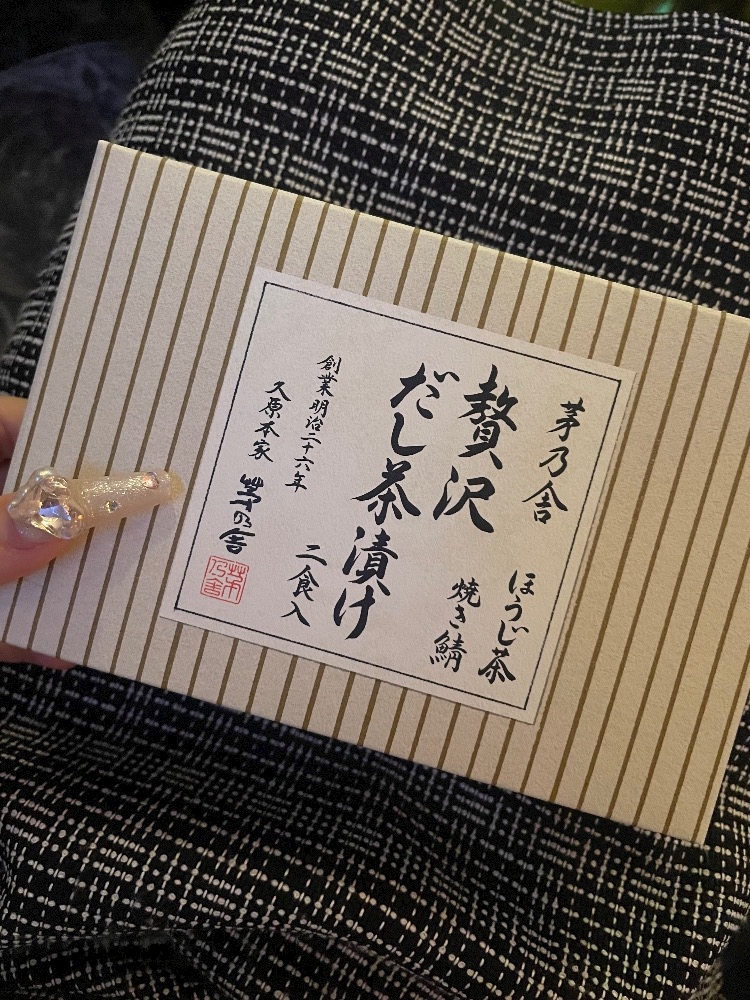 茅乃舎
ほうじ茶
焼き鯖
贅沢
だし茶漬け
二食入
創業明治二十六年
久原本家
茅乃舎
茅乃舎